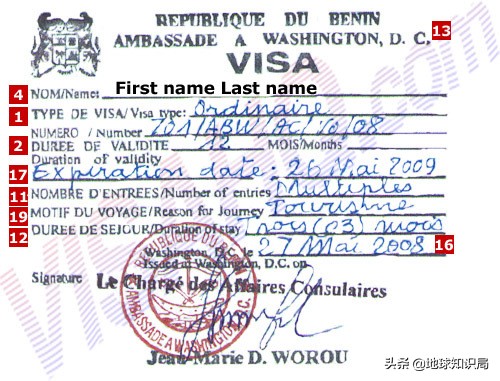 REPUBLIQUE DU BENIN
AMBASSADE A WASHINGTON, D. C. 13
VISA
4 NOM/Name: First name Last name
1 TYPE DE VISA/Visa type: Ordinaire
NUMERO / Number 701/ABW/AC/10/08
2 DUREE DE VALIDITE 12 MOIS/Months
Duration of validity
17 Expiration date: 26 Mai 2009
11 NOMBRE D'ENTREES/Number of entries Multiples
19 MOTIF DU VOYAGE/Reason for Journey Tourisme
12 DUREE DE SEJOUR/Duration of stay Trois (03) mois
Washington, le 27 Mai 2008 16
Issued at Washington, D.C. on
Signature Le Chargé des Affaires Consulaires
REPUBLIQUE DU BENIN
AMBASSADE A WASHINGTON, D.C.
Jean-Marie D. WOROU
头条 @地球知识局